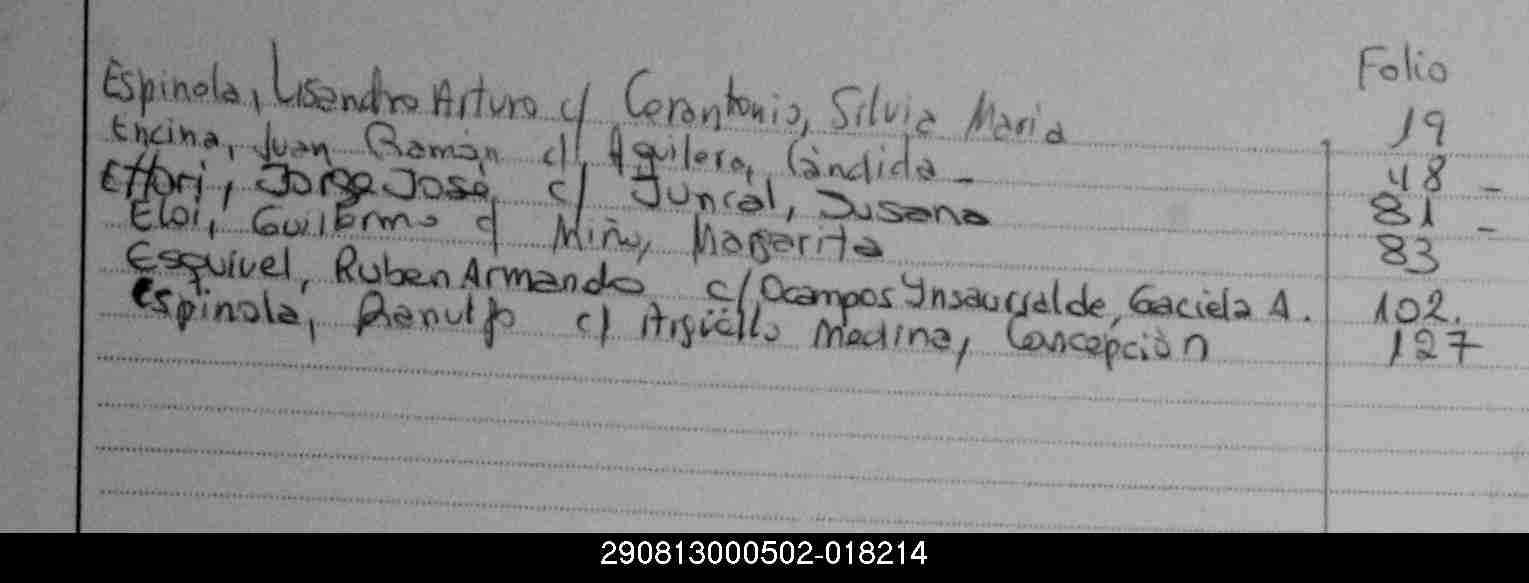 Folio
Espinola, Lisandro Arturo c/ Cerantonio, Silvia Maria 19
Encina, Juan Ramón c/ Aguilera, Cándida - 48 -
Ettori, Jorge José c/ Juncal, Susana 81 -
Eloi, Guillermo c/ Miño, Margarita 83
Esquivel, Ruben Armando c/ Ocampos Ynsaurralde, Gaciela A. 102.
Espinola, Ranulfo c/ Argüello Medina, Concepción 127
290813000502-018214